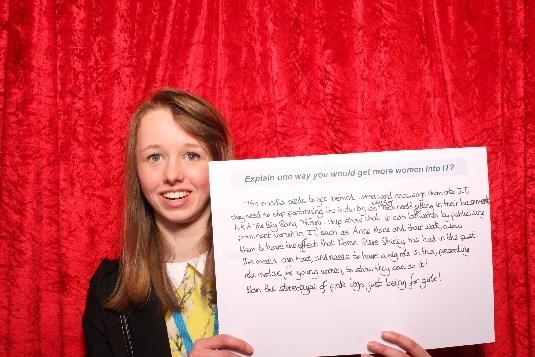 Explain one way you would get more women into IT?
The media needs to get behind women and encourage them into I.T,
they need to stop portraying the industry as "men nerds sitting in their basements"
A.K.A The Big Bang Theory. Help show that it can be by publicising
prominent women in IT, such as Anne and their work, allow
them to have the effect that Dame Steve Shirley has had in the past.
The media can have, and needs to have a big role in this, presenting
role models for young women, to show they can do it!
Ban the stereotypes of pink lego, just being for girls!